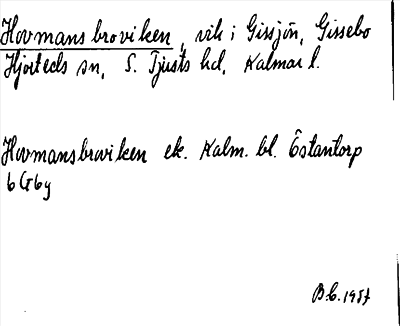 Hovmansbroviken, vik i Gissjön, Gissebo
Hjorteds sn, S. Tjusts hd, Kalmar l.
Hovmansbroviken ek. Kalm. bl. Östantorp
6G6y
B.C. 1957